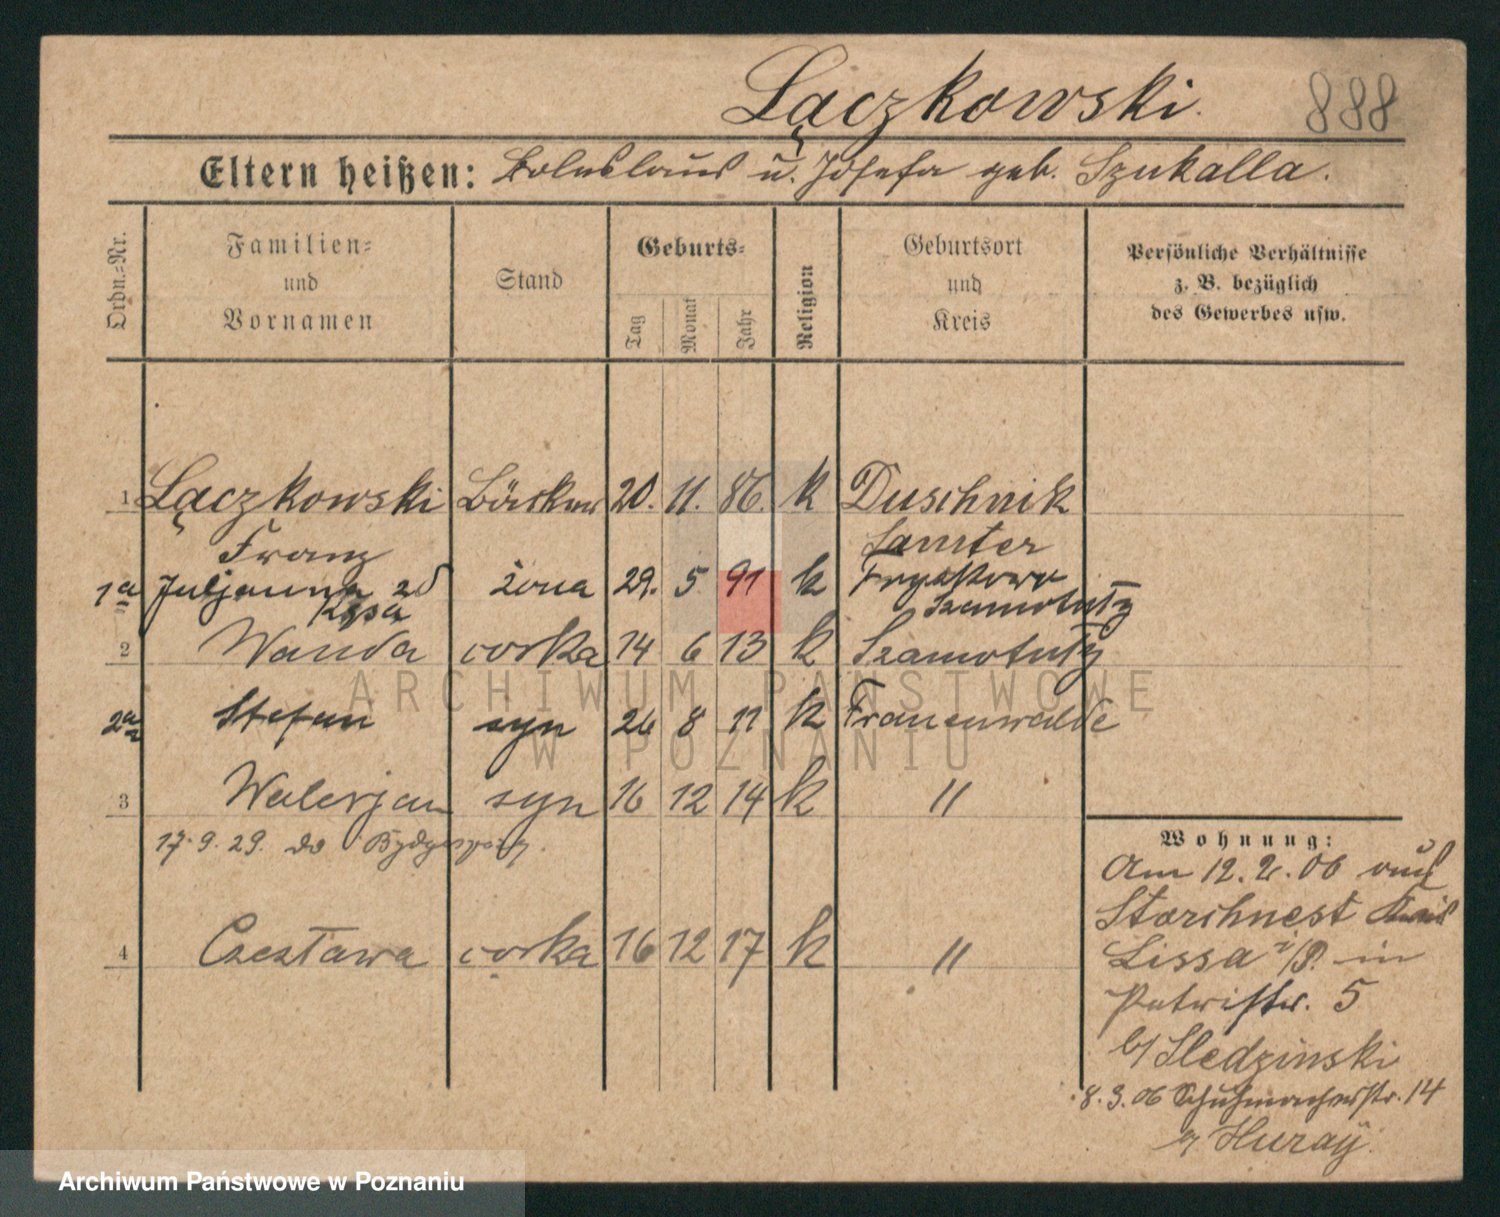 Łączkowski.
888
Eltern heißen: Boleslaus u. Josefa geb. Szukalla.
Ordn.=Nr.
Familien=
und
Vornamen
Stand
Geburts=
Tag
Monat
Jahr
Religion
Geburtsort
und
Kreis
Persönliche Verhältnisse
z. B. bezüglich
des Gewerbes usw.
1 Łączkowski 20. 11. 86. k Duschnik
Franz Samter
1a Juljanna żona 29. 5 91 k
Szamotuły
2 Wanda corka 14 6 13 k Szamotuły
2a Stefan syn 26 8 11 k Frauenwalde
3 Walerjan syn 16 12 14 k "
17.9.29. do Bydgoszczy.
4 Czesława corka 16 12 17 k "
Wohnung:
Am 12.2.06 aus
Storchnest Kreis
Lissa i/P. in
Petristr. 5
b/ Sledzinski
8.3.06 Schuhmacherstr. 14
Huray.
ARCHIWUM PAŃSTWOWE
W POZNANIU
Archiwum Państwowe w Poznaniu